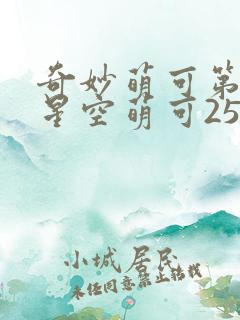 奇妙萌可第
星空萌可25
小城居民
未经同意禁止转载